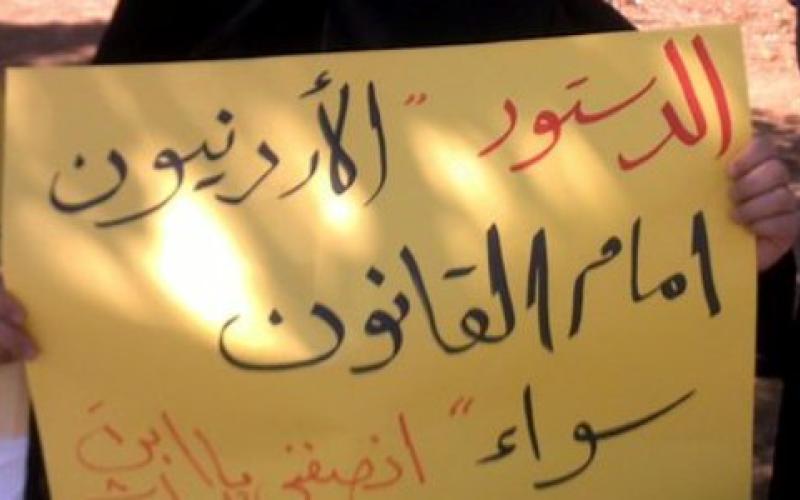 الدستور " الأردنيون
امام القانون
سواء " انصفني يا ابن